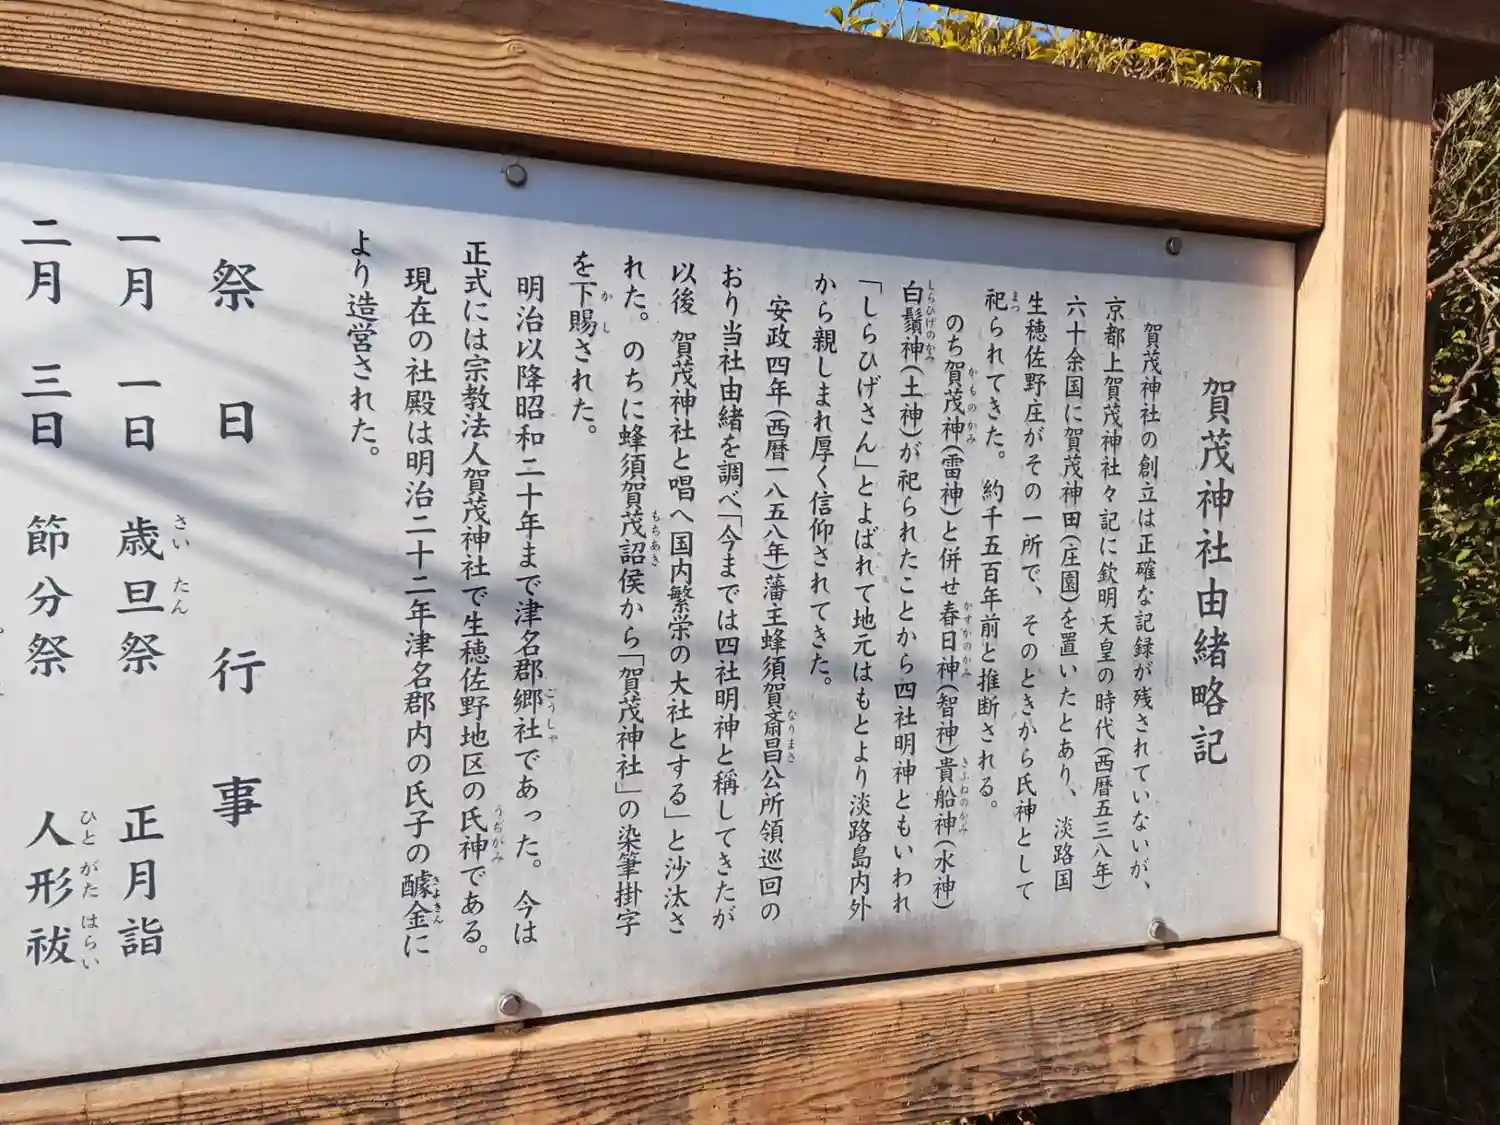 賀茂神社由緒略記
賀茂神社の創立は正確な記録が残されていないが、
京都上賀茂神社々記に欽明天皇の時代(西暦五三八年)
六十余国に賀茂神田(庄園)を置いたとあり、淡路国
生穂佐野庄がその一所で、そのときから氏神として
祀られてきた。約千五百年前と推断される。
まつ
のち賀茂神(雷神)と併せ春日神(智神)貴船神(水神)
かものかみ
かすかのかみ
きふねのかみ
白鬚神(土神)が祀られたことから四社明神ともいわれ
しらひげのかみ
「しらひげさん」とよばれて地元はもとより淡路島内外
から親しまれ厚く信仰されてきた。
安政四年(西暦一八五八年)藩主蜂須賀斎昌公所領巡回の
なりまさ
おり当社由緒を調べ「今までは四社明神と称してきたが
以後 賀茂神社と唱へ国内繁栄の大社とする」と沙汰さ
れた。のちに蜂須賀茂韶侯から「賀茂神社」の染筆掛字
もちあき
を下賜された。
かし
明治以降昭和二十年まで津名郡郷社であった。今は
ごうしゃ
正式には宗教法人賀茂神社で生穂佐野地区の氏神である。
うぢがみ
現在の社殿は明治二十二年津名郡内の氏子の醵金に
きよきん
より造営された。
祭日 行事
一月 一日 歳旦祭 正月詣
さいたん
二月 三日 節分祭 人形祓
ひとがたはらい